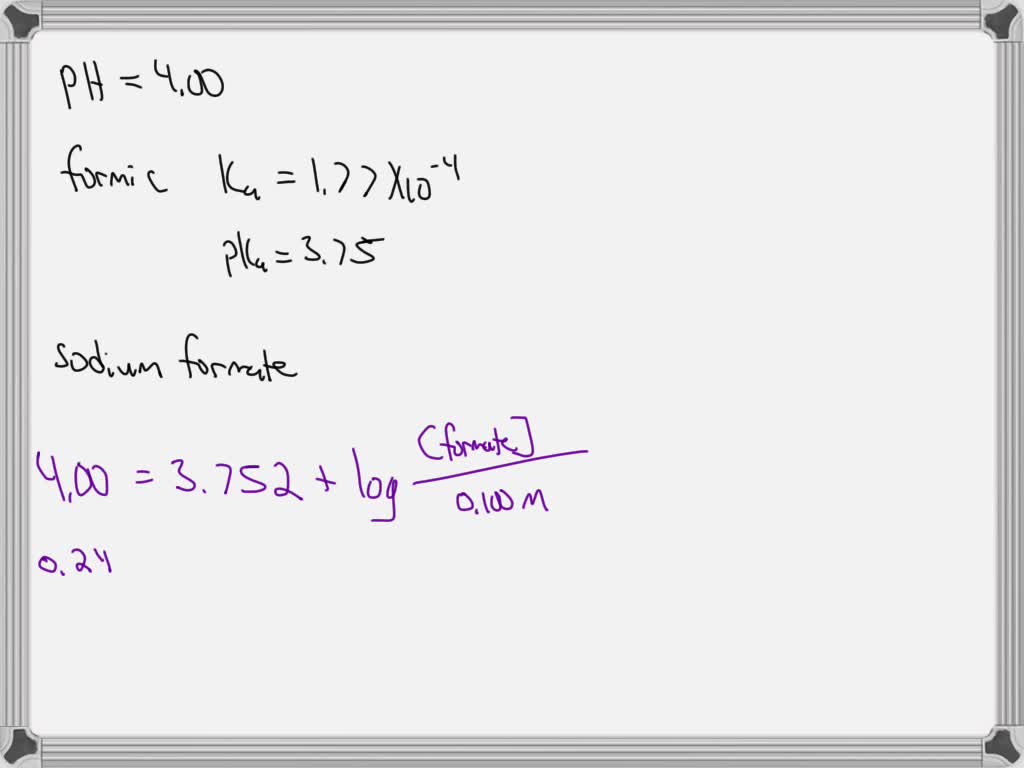 pH = 4.00
formic Ka = 1.77 X10⁻⁴
pKa = 3.75
sodium formate
4.00 = 3.752 + log [formate] / 0.100 M
0.24